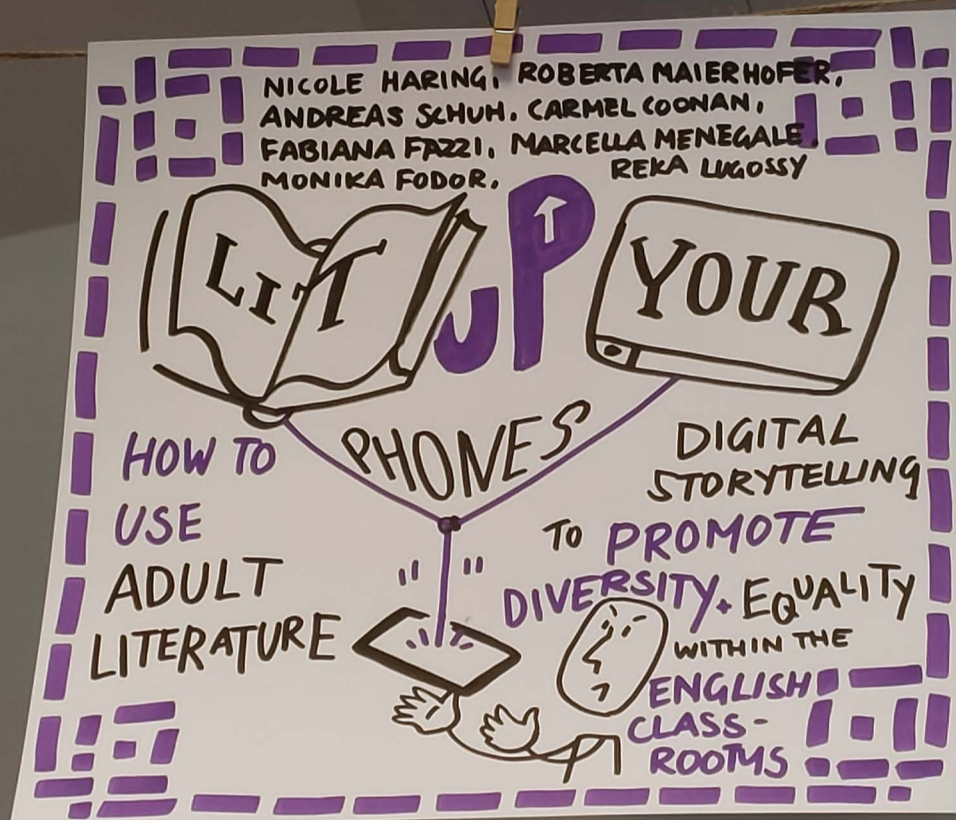 NICOLE HARING, ROBERTA MAIERHOFER,
ANDREAS SCHUH, CARMEL COONAN,
FABIANA FAZZI, MARCELLA MENEGALE,
MONIKA FODOR, REKA LUGOSSY
LIT UP YOUR
PHONES
HOW TO
USE
ADULT
LITERATURE
DIGITAL
STORYTELLING
TO PROMOTE
DIVERSITY + EQUALITY
WITHIN THE
ENGLISH
CLASS-
ROOMS